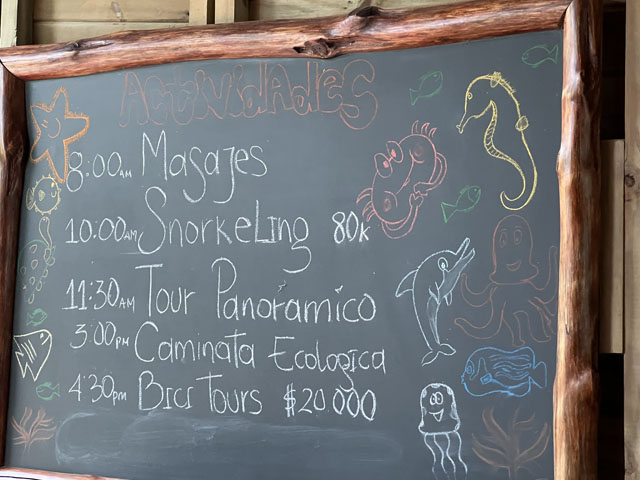 ACTIVIDADES
8:00AM Masajes
10:00AM Snorkeling 80k
11:30AM Tour Panorámico
3:00PM Caminata Ecologica
4:30pm Bici Tours $20.000